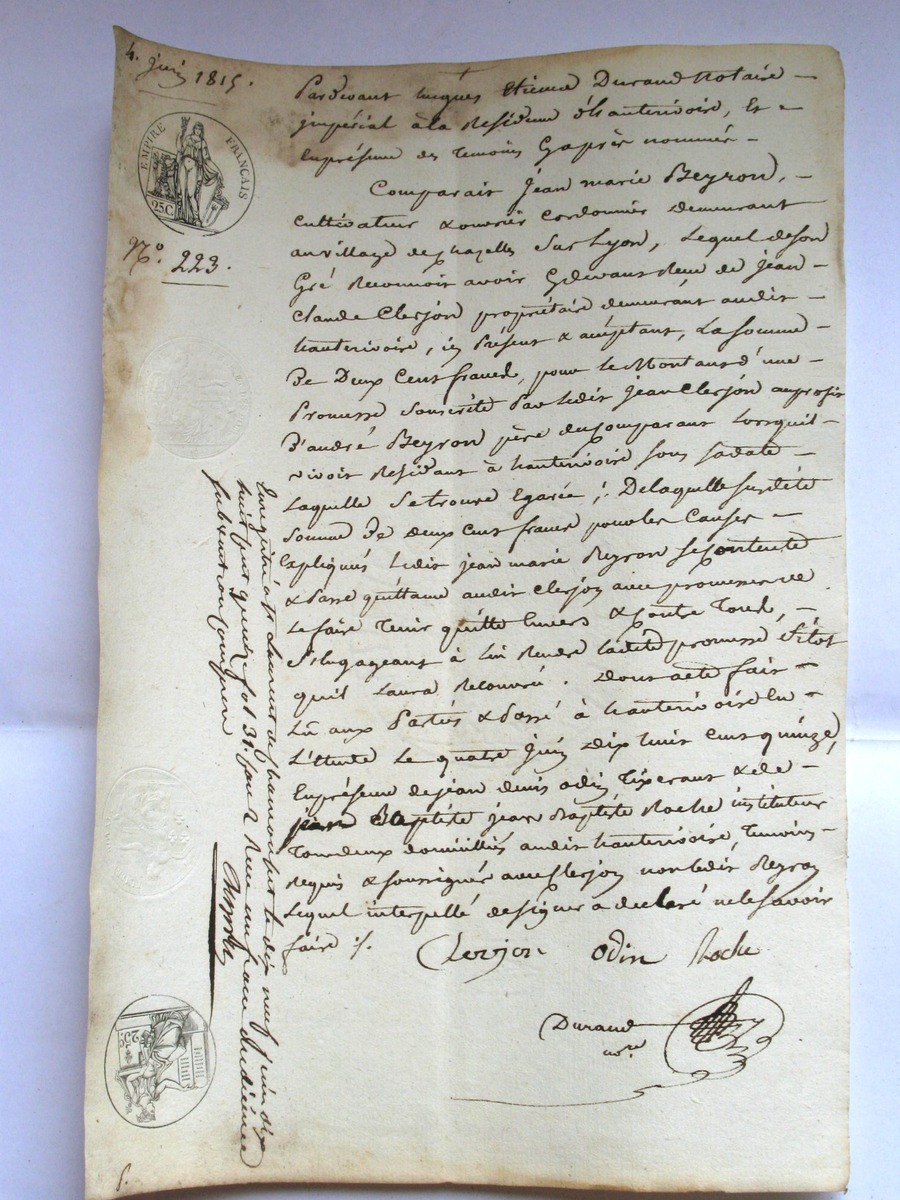 4. juin 1815.
EMPIRE FRANÇAIS
25C
N.º 223.
Pardevant Etienne Durand Notaire
jmpérial à la Residence d'hauterivoire, Et
Enprésence des Temoins Cyaprès nommés
Comparait Jean marie Beyron,
Cultivateur & ouvrier Cordonnier demeurant
auvillage de Chazelles Sur Lyon, Lequel deson
Gré Reconnoit avoir Cydevant Reçu de Jean
Claude Clerjon propriétaire demeurant audit
hauterivoire, ici Présent & acceptant, La Somme
De Deux Cent francs, pour le Montant d'une
Promesse Souscrite Par ledit Jean Clerjon auprofit
D'andré Beyron père du Comparant Lorsquil
vivoit Residant à hauterivoire sous sa date
Laquelle Se trouve Egarée ; De laquelle susdite
Somme De deux Cent francs pour les Causes
Expliqués Ledit jean marie Beyron se Contente
& Passe quittance audit Clerjon avec promesse de
Le faire Tenir quitte Envers & Contre Tous,
S'Engageant à Lui Rendre ladite promesse Sitot
quil Laura Recouvré. Dont acte fait
Lu aux Parties & Passé à hauterivoire En
L'Etude Le quatre juin dix huit Cent quinze,
Enprésence de jean denis odin Tixerant & de
jean Baptiste jean Baptiste Roche instituteur
Tous deux domiciliés audit hauterivoire, Temoins
Requis & soussignés avec Clerjon non ledit Beyron
Lequel interpellé de signer a declaré ne le savoir
faire ./.
Clerjon Odin Roche
Durand
nore
Enregistré à St Laurent de Chamousset le dix neuf juin dix
huit cent quinze fol 31. Reçu un franc dix centimes
subvention comprise
25c